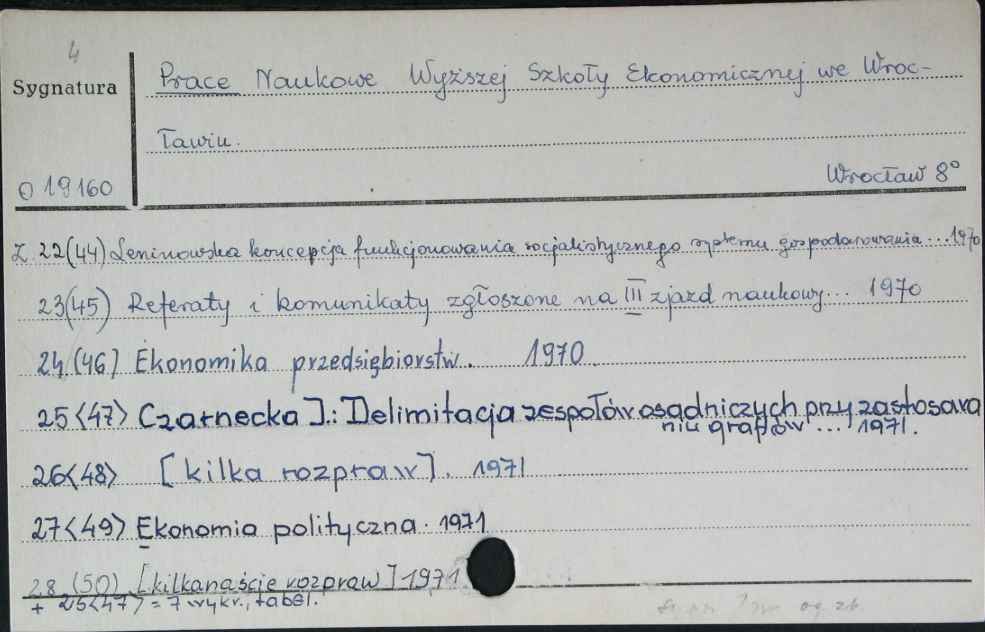 4
Sygnatura
Prace Naukowe Wyższej Szkoły Ekonomicznej we Wroc-
ławiu.
O 19160
Wrocław 8°
Z. 22(44) Leninowska koncepcja funkcjonowania socjalistycznego systemu gospodarowania...1970
23(45) Referaty i komunikaty zgłoszone na III zjazd naukowy... 1970
24(46) Ekonomika przedsiębiorstw. 1970
25<47> Czarnecka I.: Delimitacja zespołów osadniczych przy zastosowa
niu grafów... 1971.
26<48> [kilka rozpraw]. 1971
27<49> Ekonomia polityczna. 1971
28 (50) [kilkanaście rozpraw] 1971
+ 25<47> = 7 wykr., tabel.